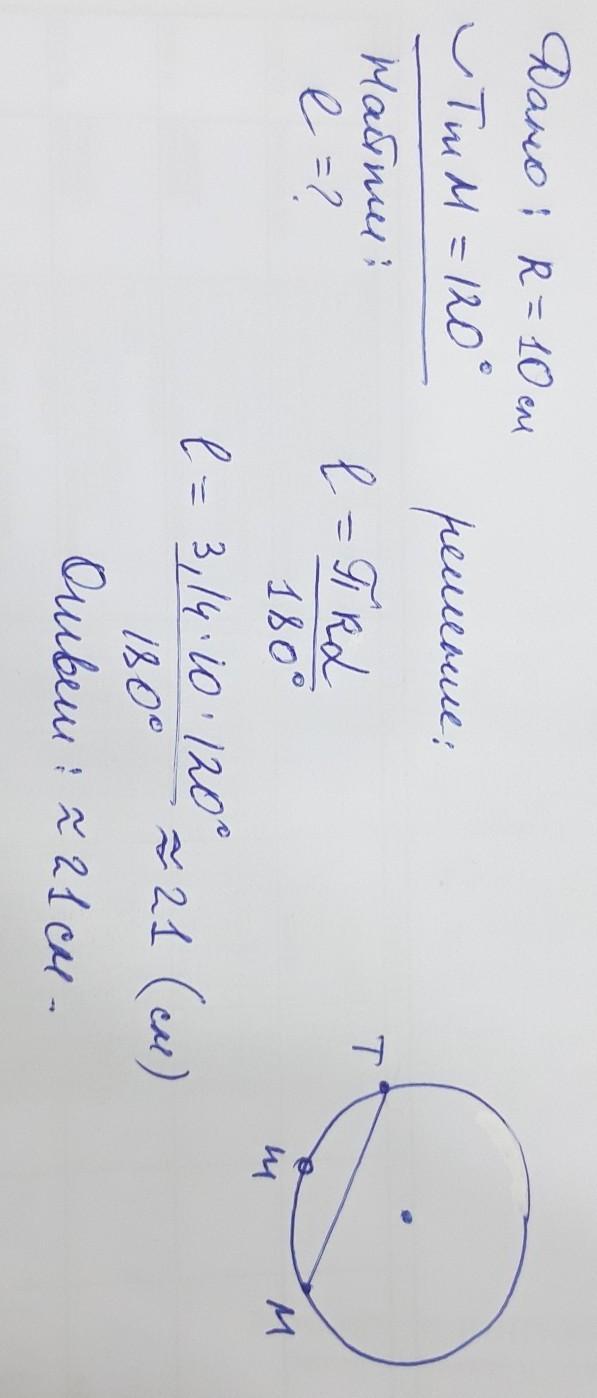 Дано: R = 10 см
◡TmM = 120°
Найти:
l = ?
решение:
l = πRα
180°
l = 3,14·10·120°
180°
≈ 21 (см)
Ответ: ≈ 21 см.
T
m
M